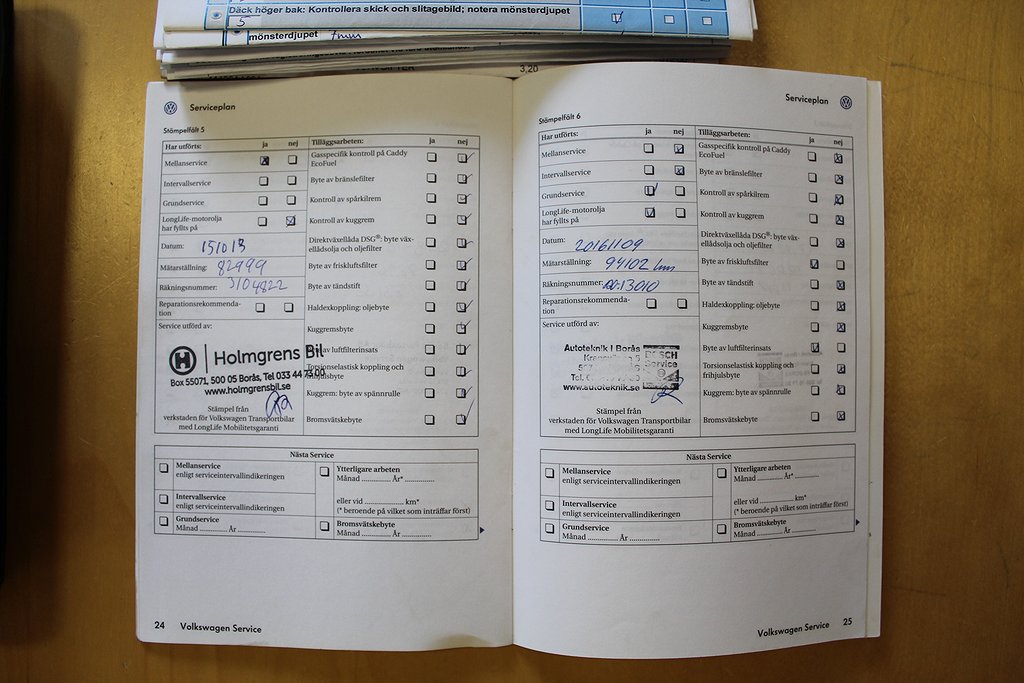 Däck höger bak: Kontrollera skick och slitagebild; notera mönsterdjupet
5
mönsterdjupet 7mm
3,20
Serviceplan
Stämpelfält 5
Har utförts: ja nej Tilläggsarbeten: ja nej
Mellanservice
Gasspecifik kontroll på Caddy
EcoFuel
Intervallservice
Byte av bränslefilter
Grundservice
Kontroll av spårkilrem
LongLife-motorolja
har fyllts på
Kontroll av kuggrem
Datum: 151013
Direktväxellåda DSG®: byte väx-
ellådsolja och oljefilter
Mätarställning: 82999
Byte av friskluftsfilter
Räkningsnummer: 3104822
Byte av tändstift
Reparationsrekommenda-
tion
Haldexkoppling: oljebyte
Service utförd av:
Kuggremsbyte
Byte av luftfilterinsats
Torsionselastisk koppling och
frihjulsbyte
Kuggrem: byte av spännrulle
Bromsvätskebyte
H Holmgrens Bil
Box 55071, 500 05 Borås, Tel 033 44 73 00
www.holmgrensbil.se
Stämpel från
verkstaden för Volkswagen Transportbilar
med LongLife Mobilitetsgaranti
Nästa Service
Mellanservice
enligt serviceintervallindikeringen
Intervallservice
enligt serviceintervallindikeringen
Grundservice
Månad ............ År ...............
Ytterligare arbeten
Månad ............ År* ...............
eller vid .................. km*
(* beroende på vilket som inträffar först)
Bromsvätskebyte
Månad ............ År ...............
24 Volkswagen Service
Serviceplan
Stämpelfält 6
Har utförts: ja nej Tilläggsarbeten: ja nej
Mellanservice
Gasspecifik kontroll på Caddy
EcoFuel
Intervallservice
Byte av bränslefilter
Grundservice
Kontroll av spårkilrem
LongLife-motorolja
har fyllts på
Kontroll av kuggrem
Datum: 20161109
Direktväxellåda DSG®: byte väx-
ellådsolja och oljefilter
Mätarställning: 94102 km
Byte av friskluftsfilter
Räkningsnummer:
Byte av tändstift
Reparationsrekommenda-
tion
Haldexkoppling: oljebyte
Service utförd av:
Kuggremsbyte
Byte av luftfilterinsats
Torsionselastisk koppling och
frihjulsbyte
Kuggrem: byte av spännrulle
Bromsvätskebyte
Autoteknik i Borås
BOSCH
Service
www.autoteknik.se
Stämpel från
verkstaden för Volkswagen Transportbilar
med LongLife Mobilitetsgaranti
Nästa Service
Mellanservice
enligt serviceintervallindikeringen
Intervallservice
enligt serviceintervallindikeringen
Grundservice
Månad ............ År ...............
Ytterligare arbeten
Månad ............ År* ...............
eller vid .................. km*
(* beroende på vilket som inträffar först)
Bromsvätskebyte
Månad ............ År ...............
Volkswagen Service 25